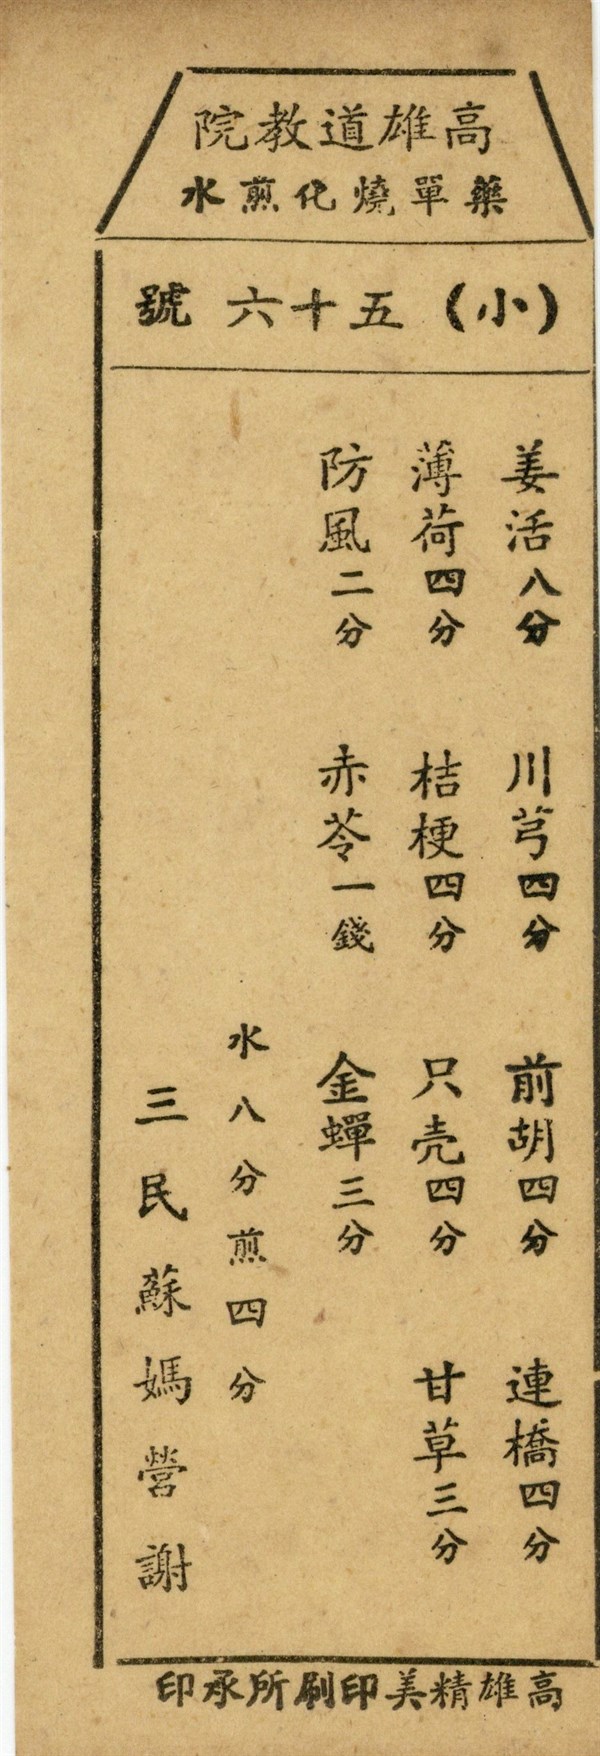 高雄道教院
藥單燒化煎水
(小)五十六號
姜活八分 川芎四分 前胡四分 連橋四分
薄荷四分 桔梗四分 只壳四分 甘草三分
防風二分 赤苓一錢 金蟬三分
水八分煎四分
三民蘇媽營謝
高雄精美印刷所承印